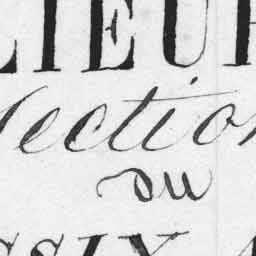 LIEUR
Section
DU
SSIX A